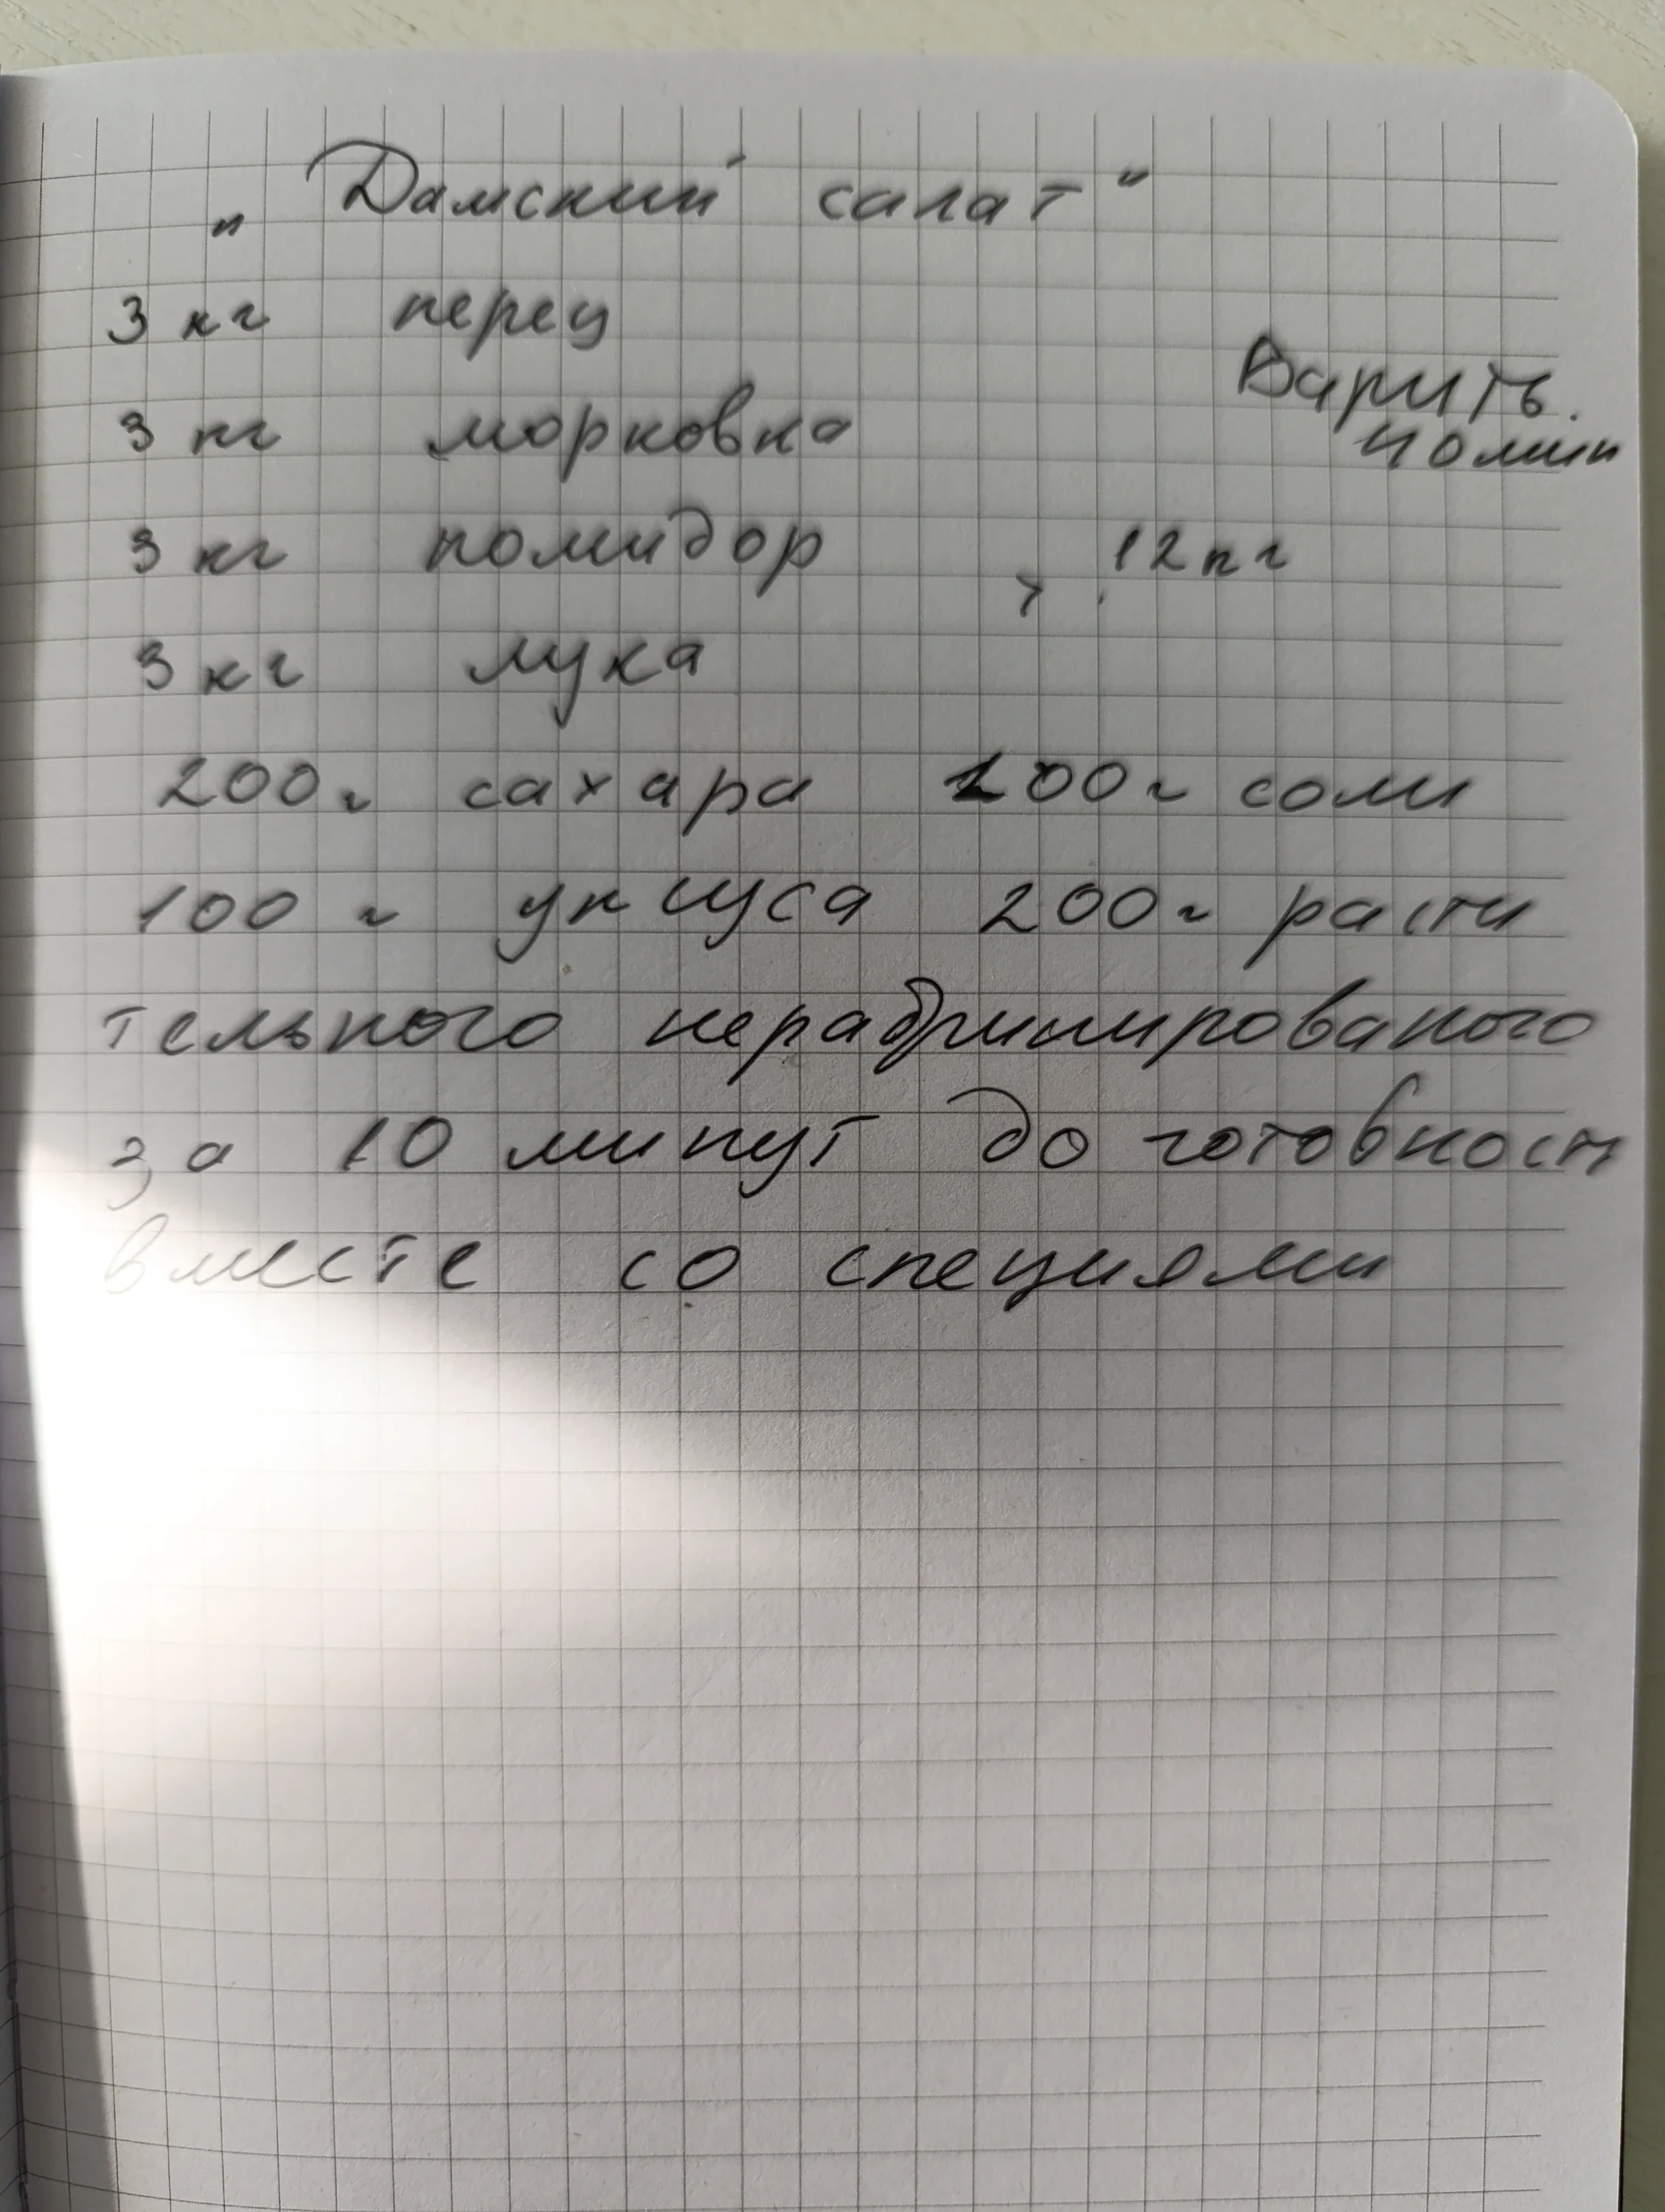 „Дамский салат"
3 кг перец
3 кг морковка
Варить.
40 мин
3 кг помидор
12 кг
3 кг лука
200 г сахара 100 г соли
100 г укцуса 200 г расти
тельного нерафинированого
за 10 минут до готовности
вместе со специями